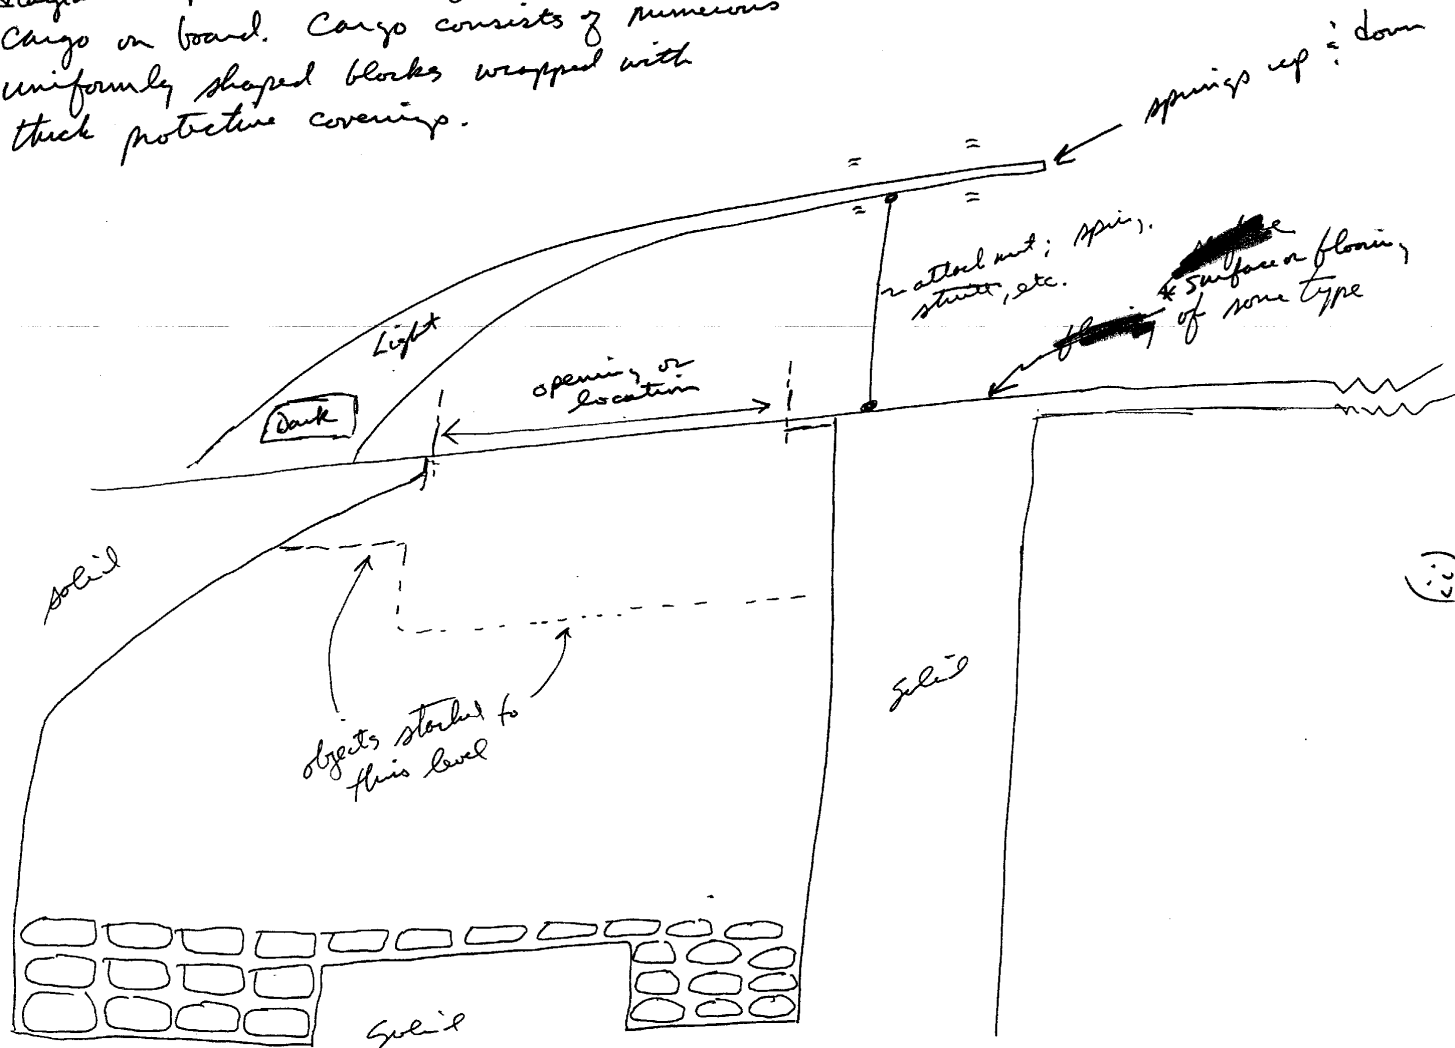 Cargo on board. Cargo consists of numerous
uniformly shaped blocks wrapped with
thick protective coverings.
springs up & down
attachment; spring,
strutt, etc.
* surface or flooring
of some type
Light
Dark
opening or
location
solid
objects stacked to
this level
Solid
Solid